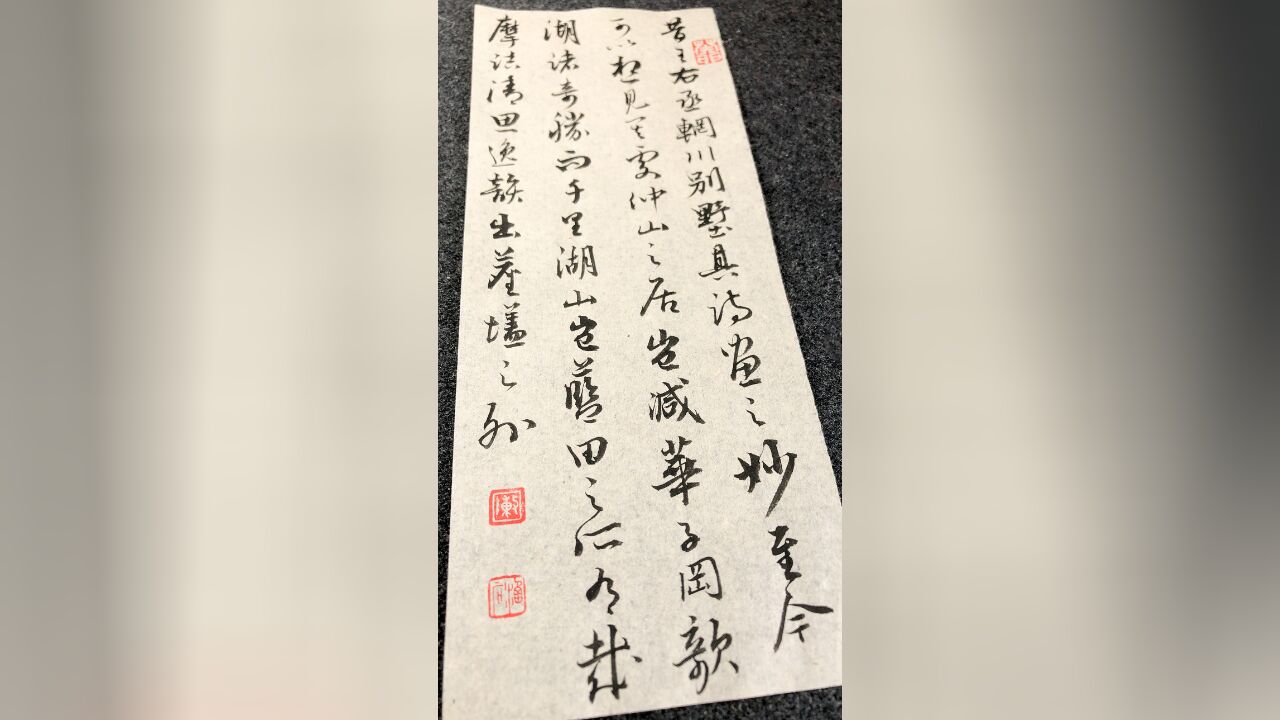 昔王右丞輞川别墅具詩畫之妙至今
可以想見其處仲山之居豈減華子岡欹
湖諸奇勝而千里湖山豈藍田之所有哉
摩詰清思逸韻出塵壒之外